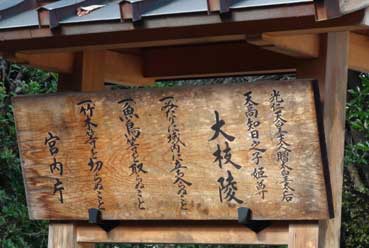 光仁天皇夫人贈太皇太后
天高知日之子姫尊
大枝陵
一、みだりに域内に立入らぬこと
一、魚鳥等を取らぬこと
一、竹木等を切らぬこと
宮内庁